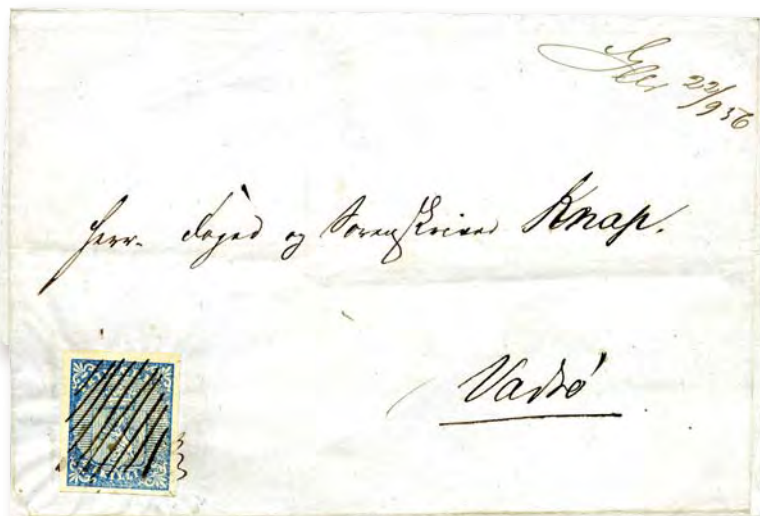 22/9 56
Herr. Foged og Sorenskriver Knap.
Vadsö